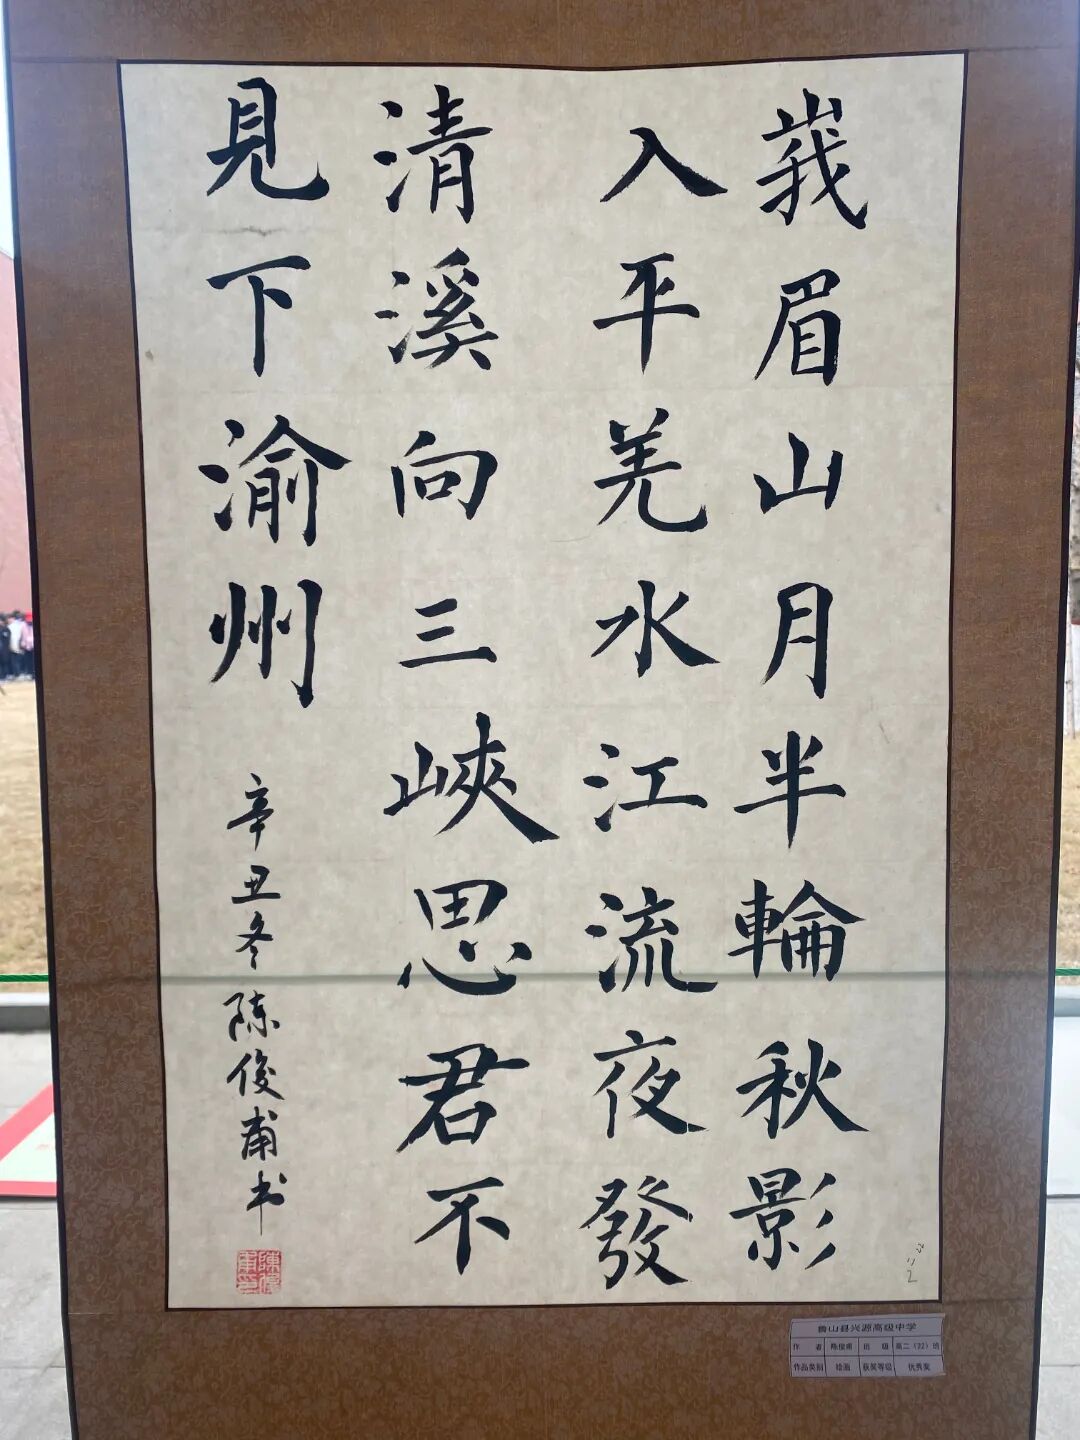 峩眉山月半輪秋影
入平羌水江流夜發
清溪向三峽思君不
見下渝州
辛丑冬陈俊甫书
陳俊甫印
鲁山县兴源高级中学
作者 陈俊甫 班级 高二（22）班
作品类别 绘画 获奖等级 优秀奖